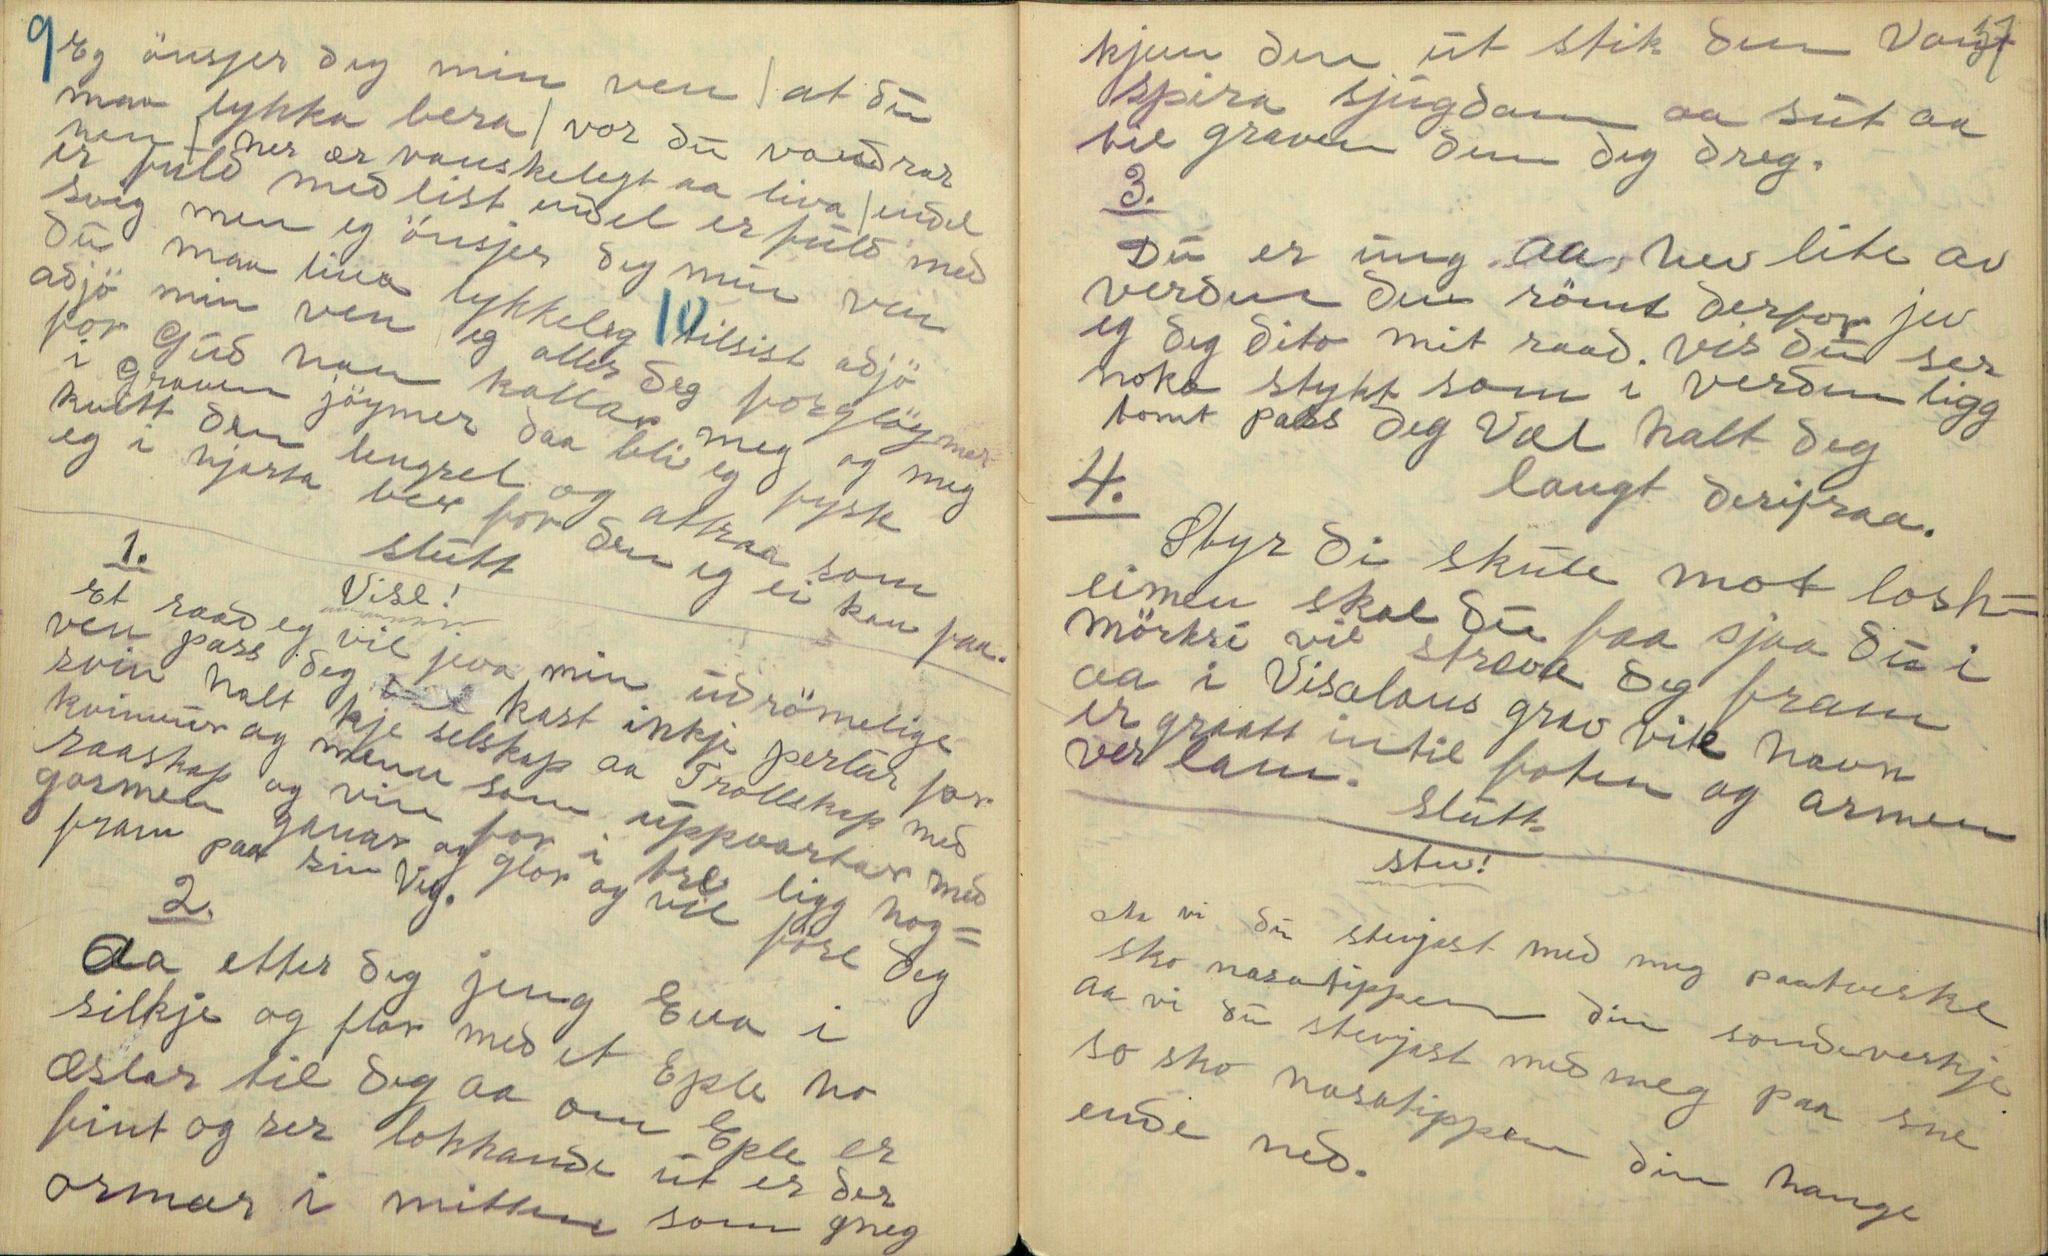 9 Eg önsjer deg min ven / at du
maa lykka bera / vor du vandrar
her ær vanskelegt aa liva / endel
er fuld med list endel er fuld med
svig men eg önsjer deg min ven
du maa liva lykkeleg 10 tilsist adjö
adjö min ven eg aller deg forgløymer
for Gud han kallar meg og meg
i Graven jöymer daa bli eg fysk
kvitt den lengsel og attraa som
eg i hjarta ber for den eg ei kan faa.
slutt
Vise!
1.
Et raad eg vil jeva min udrömelige
ven pass deg kast ikkje perlur for
svin halt kje selskap aa Trollskap med
kvinnur og menn som uppvartar med
raaskap og vin for i tre ligg hog=
gormen ganar og glor og vil före deg
fram paa sin Veg.
2.
Aa etter deg jeng Eva i
silkje og flor med et Eple ho
æslar til deg aa om Eple er
fint og ser lokkande ut er der
ormar i mitten som gneg
37
kjem den ut stik den Vondt
spira sjugdom aa sut aa
til graven dem deg dreg.
3.
Du er ung aa hev lite av
verden den römt derfor jev
eg deg dito mit raad. vis du ser
noko stykt som i verden ligg
tomt pass deg Væl halt deg
langt derifraa.
4.
Styr di skute mot losh=
eimen skal du faa sjaa du i
mörkri vil streva deg fram
aa i Visælaus grav vil havn
er graatt intil foten og armen
ver lam.
Slutt
stev!
Aa vi du stevjast med meg paa tverske
sko nasatippen din sondeverskje
aa vi du stevjast med meg paa sne
so sko nasatippen din hange
ende ned.